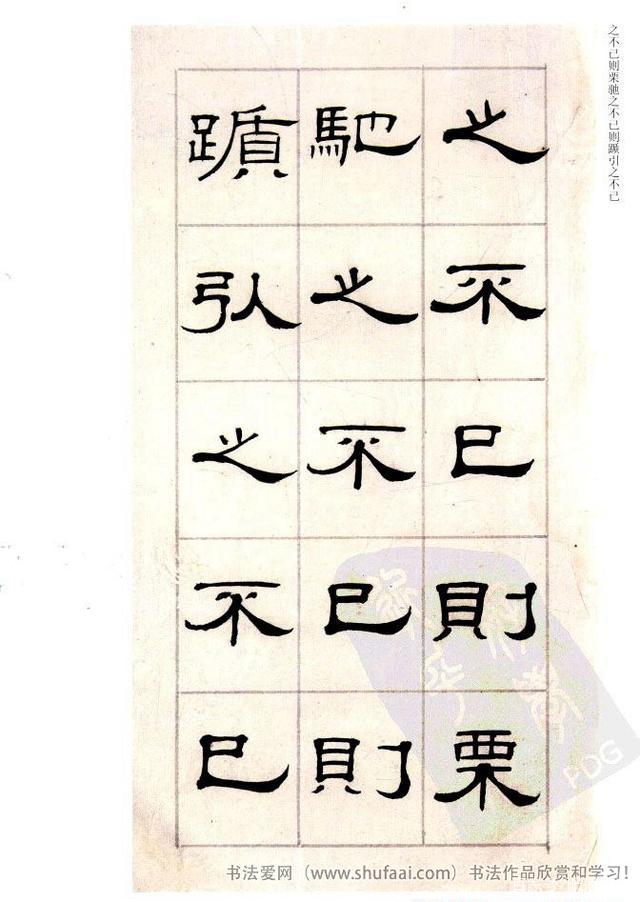 之不已则栗驰之不已则踬引之不已
之不已則栗
馳之不已則
躓引之不已
PDG
书法爱网（www.shufaai.com）书法作品欣赏和学习！